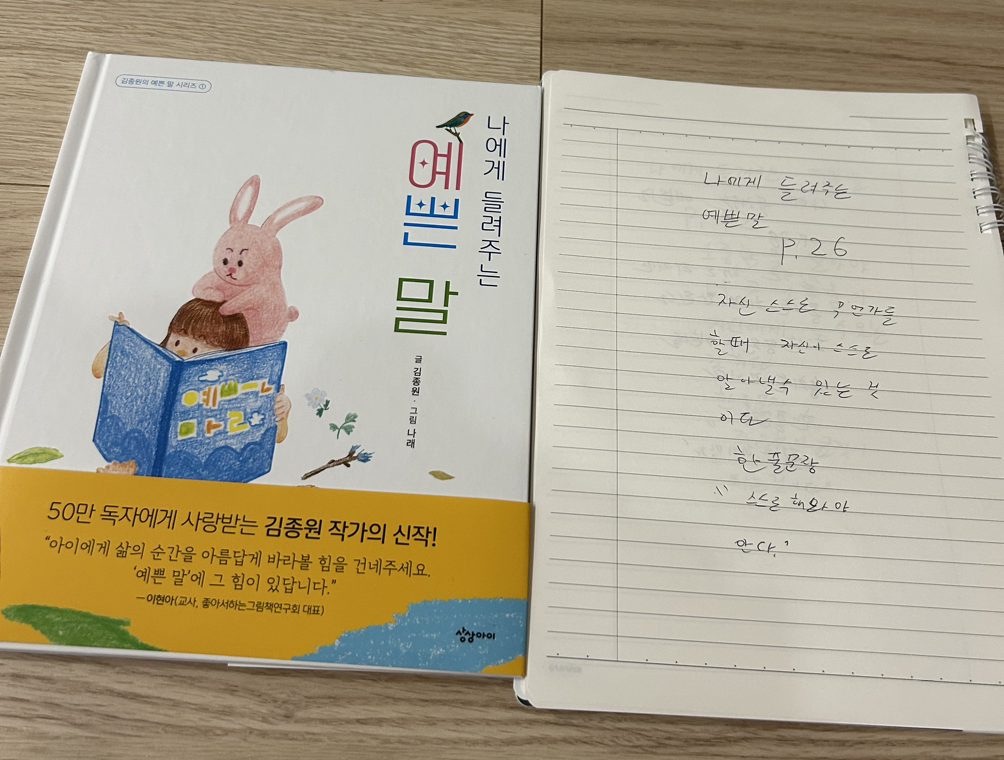 김종원의 예쁜 말 시리즈 ①
나에게 들려주는
예쁜
말
글 김종원 · 그림 나래
예쁘ㄴ
마ㄹ
50만 독자에게 사랑받는 김종원 작가의 신작!
“아이에게 삶의 순간을 아름답게 바라볼 힘을 건네주세요.
‘예쁜 말’에 그 힘이 있답니다.”
—이현아(교사, 좋아서하는그림책연구회 대표)
상상아이
나에게 들려주는
예쁜말
P.26
자신 스스로 무언가를
할때 자신이 스스로
알아낼수 있는 것
이다
한줄문장
스스로 해봐야
안다.”